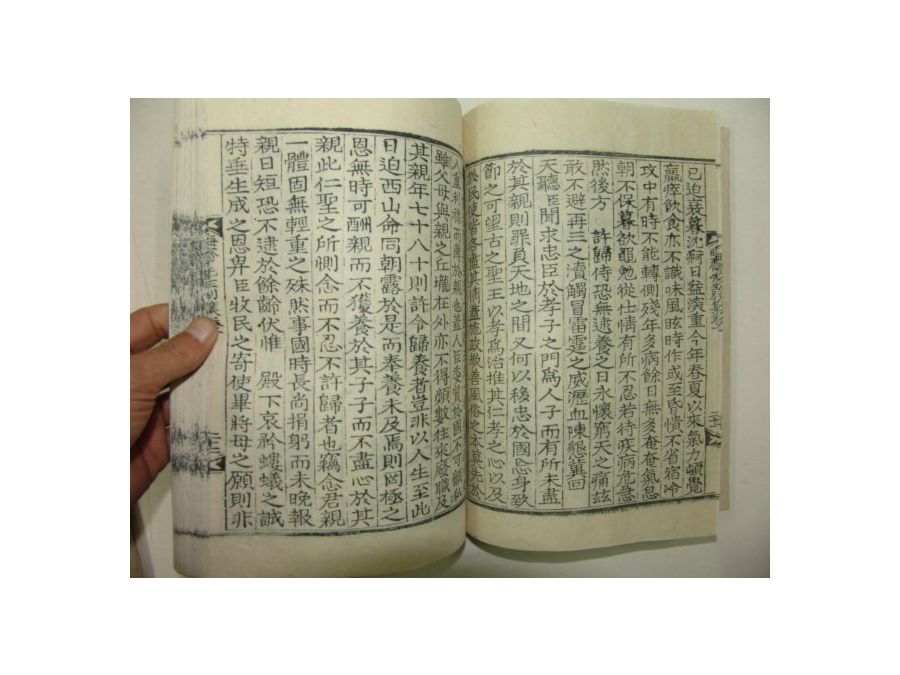 已迫衰暮沈痾日益深重今年春夏以來氣力頓覺
羸瘁飮食亦不識味風眩時作或至昏憒不省宿冷
攻中有時不能轉側殘年多病餘日無多奄奄氣息
朝不保暮欲黽勉從仕情有所不忍若待疾病危急
然後方 許歸侍恐無逮養之日永懷窮天之痛玆
敢不避再三之瀆觸冒雷霆之威瀝血陳懇冀回
天聽臣聞求忠臣於孝子之門爲人子而有所未盡
於其親則罪負天地之間又何以移忠於國忘身致
節之可望古之聖王以孝爲治推其仁孝之心以及
民使皆各盡其情蓋施政敎善風俗之本莫先於
人重利祿而薄於親也蓋人臣委質於國不可顧私
雖父母與親之丘壠在外亦不得頻數往來廢職及
其親年七十八十則許令歸養者豈非以人生至此
日迫西山命同朝露於是而奉養未及焉則罔極之
恩無時可酬親而不獲養於其子子而不盡心於其
親此仁聖之所惻念而不忍不許歸者也竊念君親
一體固無輕重之殊然事國時長尚捐躬而未晩報
親日短恐不逮於餘齡伏惟 殿下哀矜螻蟻之誠
特垂生成之恩畀臣牧民之寄使畢將母之願則非